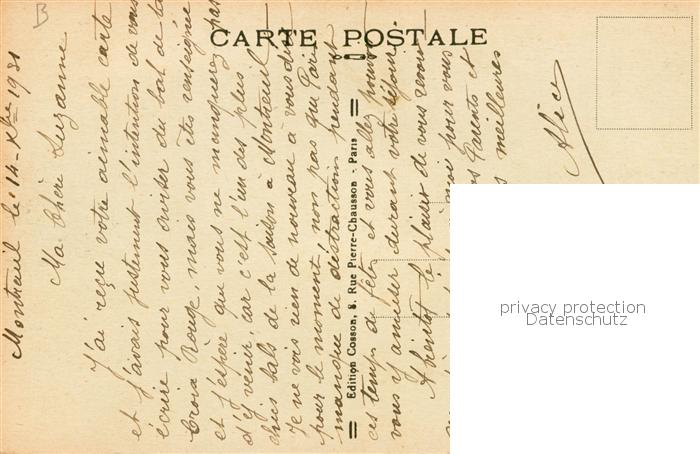 B
CARTE POSTALE
Edition Cosson, 8, Rue Pierre-Chausson - Paris
Montreuil le 14 - Xbre 1931
Ma Chère Suzanne
J'ai reçue votre aimable carte
et j'avais justement l'intention de vous
écrire pour vous aviser du bal de la
Croix Rouge, mais vous êtes renseignée
et j'espère que vous ne manquerez pas
d'y venir, car c'est l'un des plus
chics bals de la saison à Montreuil
Je ne vois rien de nouveau à vous dire
pour le moment, non pas que Paris
manque de distractions pendant
ces temps de fêtes et vous allez pouvoir
vous y amuser durant votre séjour
A bientôt le plaisir de vous revoir
moi pour vous
Parents et
meilleures
Alice
privacy protection
Datenschutz